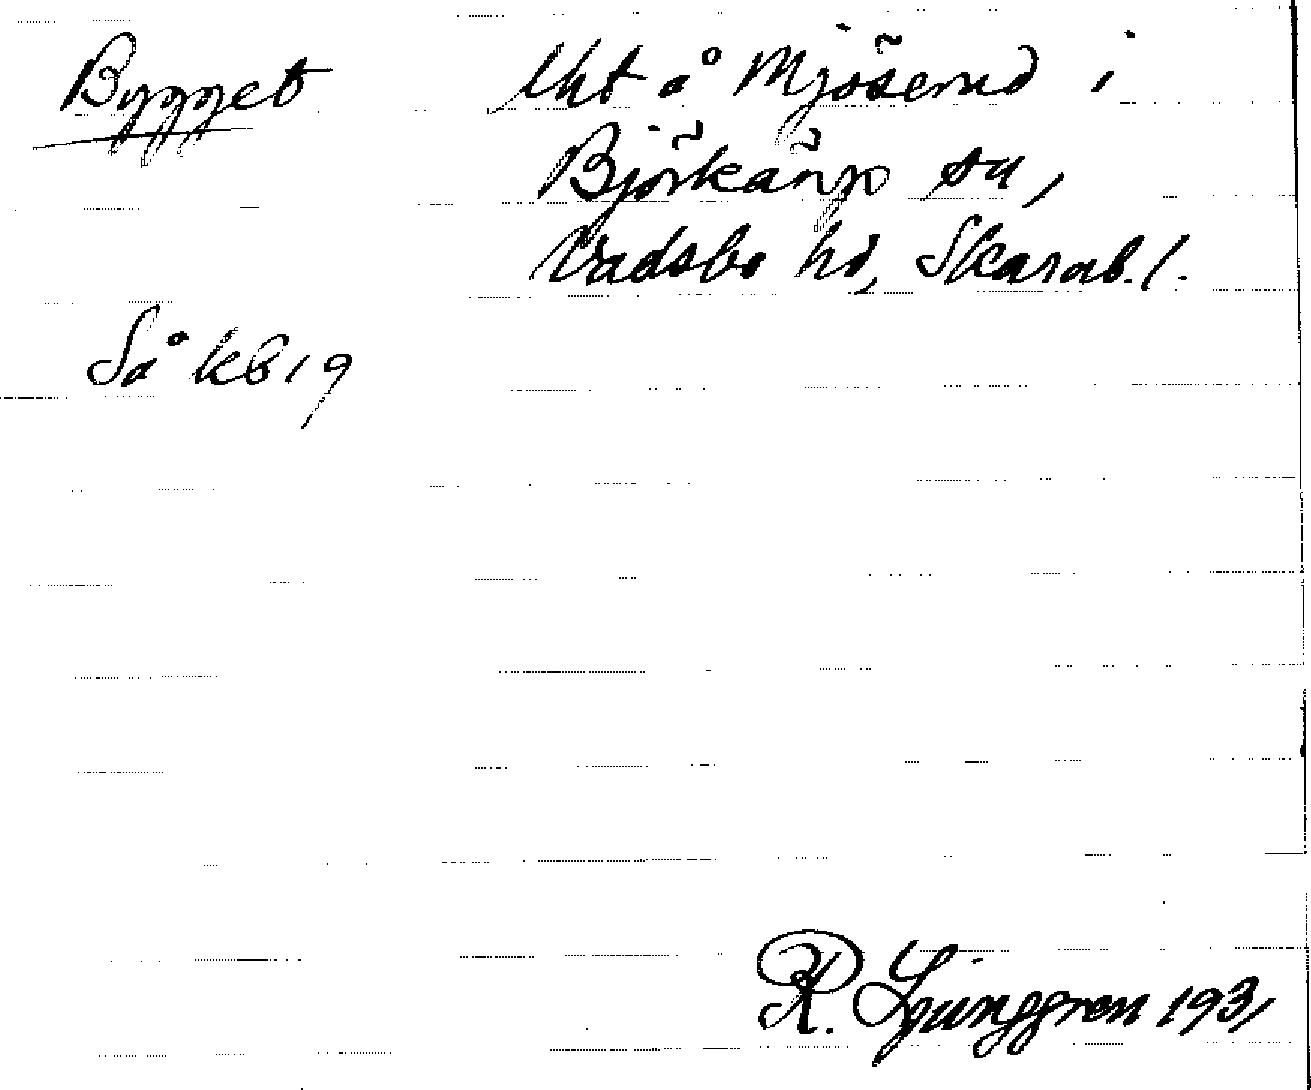 Bygget Lht å Mjöserud i
Björkäng sn,
Vadsbo hd, Skarab. l.
Så kb 19
R. Ljunggren 1931